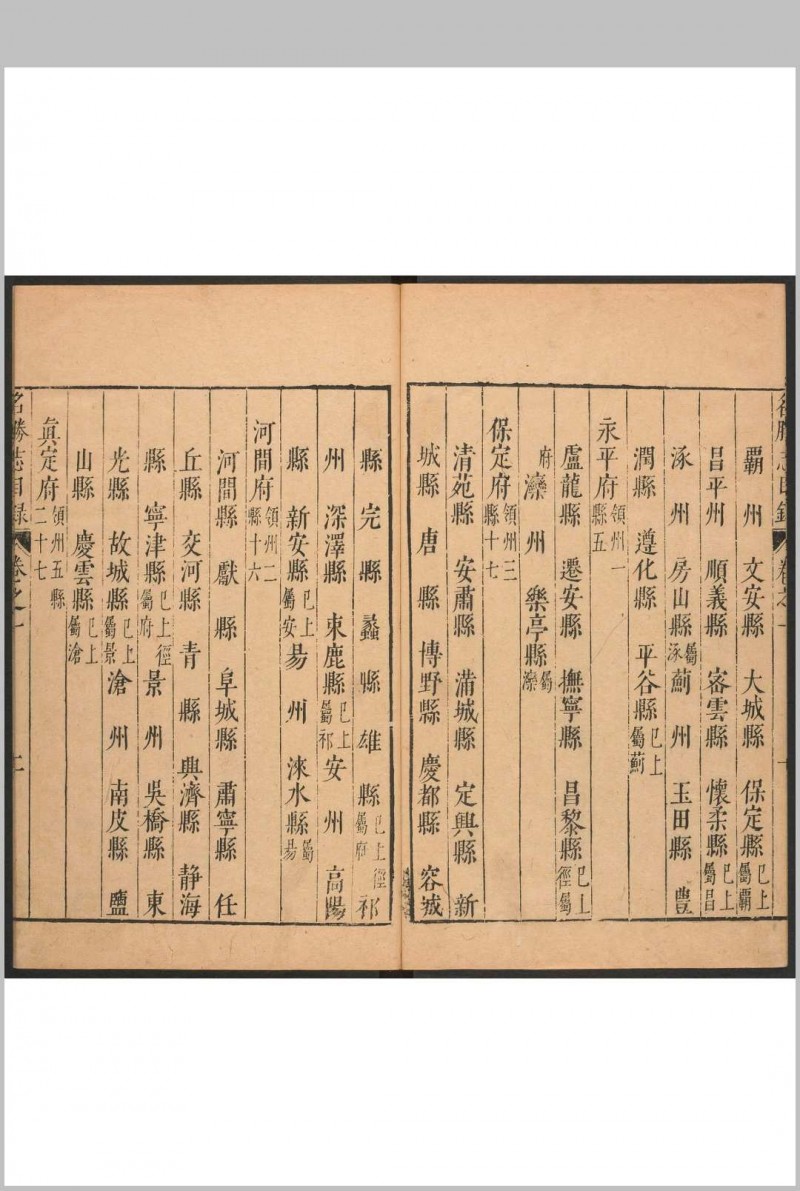 名勝志目錄 卷之一
霸州 文安縣 大城縣 保定縣 已上屬霸
昌平州 順義縣 密雲縣 懷柔縣 已上屬昌
涿州 房山縣 屬涿 薊州 玉田縣 豊
潤縣 遵化縣 平谷縣 已上屬薊
永平府 領州一縣五
盧龍縣 遷安縣 撫寧縣 昌黎縣 已上徑屬
府 灤州 樂亭縣 屬灤
保定府 領州三縣十七
清苑縣 安肅縣 滿城縣 定興縣 新
城縣 唐縣 博野縣 慶都縣 容城
縣 完縣 蠡縣 雄縣 已上徑屬府 祁
州 深澤縣 束鹿縣 已上屬祁 安州 高陽
縣 新安縣 已上屬安 易州 淶水縣 屬易
河間府 領州二縣十六
河間縣 獻縣 阜城縣 肅寧縣 任
丘縣 交河縣 青縣 興濟縣 静海
縣 寧津縣 已上徑屬府 景州 吳橋縣 東
光縣 故城縣 已上屬景 滄州 南皮縣 鹽
山縣 慶雲縣 已上屬滄
真定府 領州五縣二十七
名勝志目錄 卷之一 二